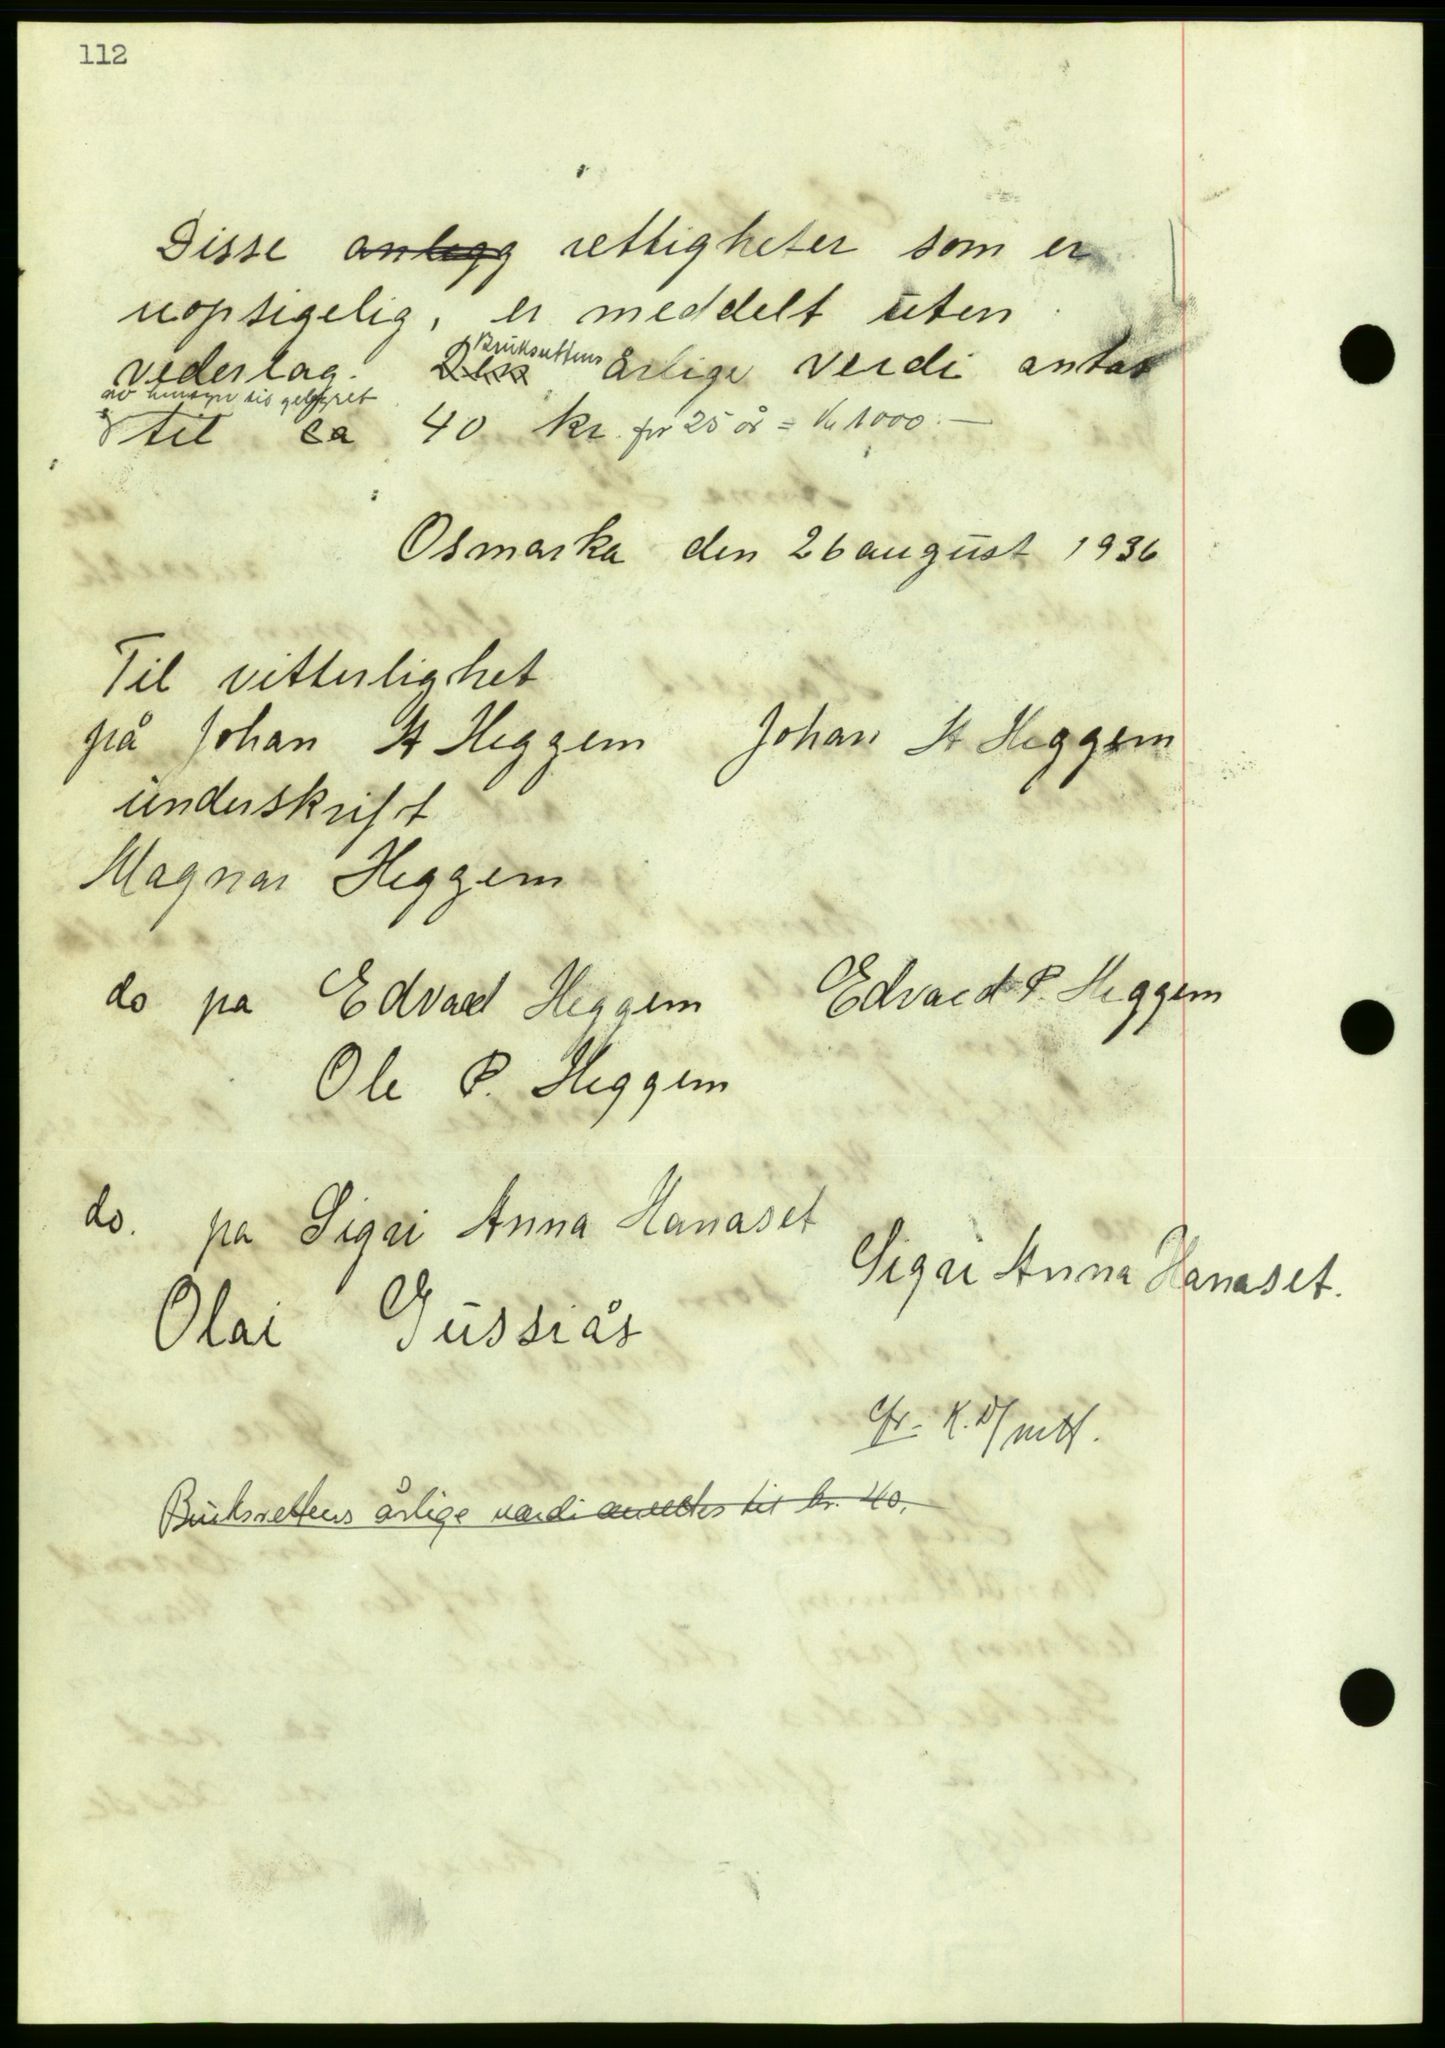 112
Disse anlegg rettigheter som er
uopsigelig, er meddelt uten
vederlag. Den Bruksrettens årlige verdi antas
av hensyn til gebyret
til ca 40 kr. for 25 år = kr 1000.—
Osmarka den 26 august 1936
Til vitterlighet
på Johan A Heggem Johan A Heggem
underskrift
Magnar Heggem
do pa Edvard Heggem Edvard P. Heggem
Ole P. Heggem
do. pa Sigri Anna Hanaset
Sigri Anna Hanaset.
Olai Gussiås
Bruksrettens årlige verdi ansettes til kr. 40.